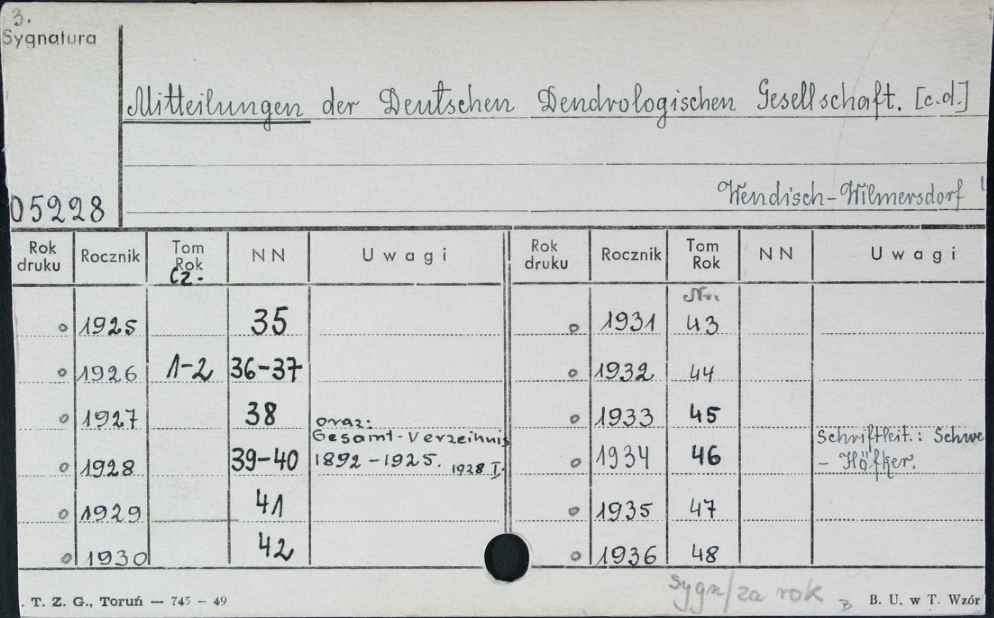 3.
Sygnatura
Mitteilungen der Deutschen Dendrologischen Gesellschaft. [c.d.]
Wendisch-Wilmersdorf
05228
Rok druku Rocznik Tom Rok cz. NN Uwagi Rok druku Rocznik Tom Rok NN Uwagi
Nr.
o 1925 35 o 1931 43
o 1926 1-2 36-37 o 1932 44
o 1927 38 o 1933 45
oraz:
Gesamt-Verzeihnis Schriftleit.: Schwe
o 1928 39-40 1892-1925. 1928 I. o 1934 46 - Höfker.
o 1929 41 o 1935 47
o 1930 42 o 1936 48
sygn/za rok
. T. Z. G., Toruń — 745 – 49 B. U. w T. Wzór